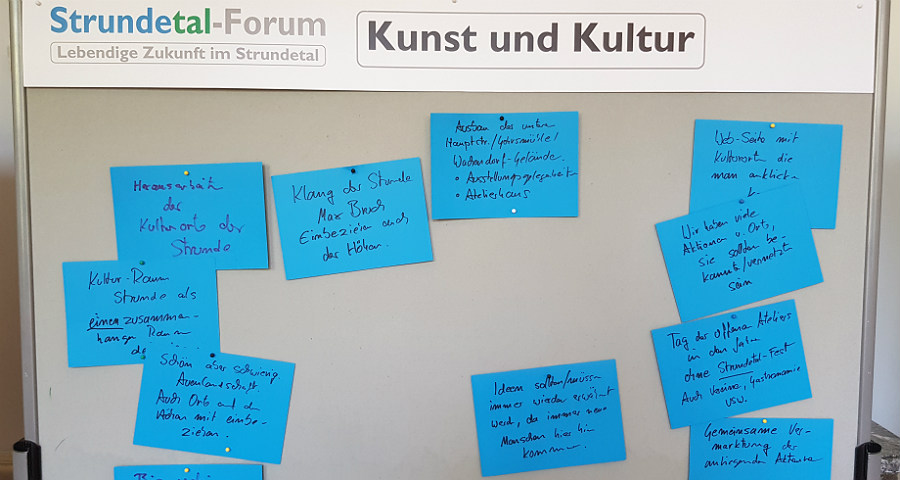 Strundetal-Forum
Lebendige Zukunft im Strundetal
Kunst und Kultur
Herausarbeit
der
Kulturorte der
Strunde
Kultur-Raum
Strunde als
einen zusammen-
hängen Raum
Schön aber schwierig.
Auenlandschaft
Auch Orte auf den
Höhen mit einbe-
ziehen.
Klang der Strunde
Max Bruch
Einbeziehen auch
der Höhen.
Ausbau des unteren
Hauptstr./Gohrsmühle/
Wachendorf-Gelände.
• Ausstellungsgelegenheit
• Atelierhaus
Ideen sollten/müssen
immer wieder erwähnt
werd, da immer neue
Menschen hier hin
kommen.
Web-Seite mit
Kulturorten die
man anklicken
Wir haben viele
Aktionen u. Orte,
sie sollten be-
kannt/vernetzt
sein
Tag der offenen Ateliers
in dem Jahr
ohne Strundetal-Fest
Auch Vereine, Gastronomie
usw.
Gemeinsame Ver-
marktung der
anliegenden Akteure